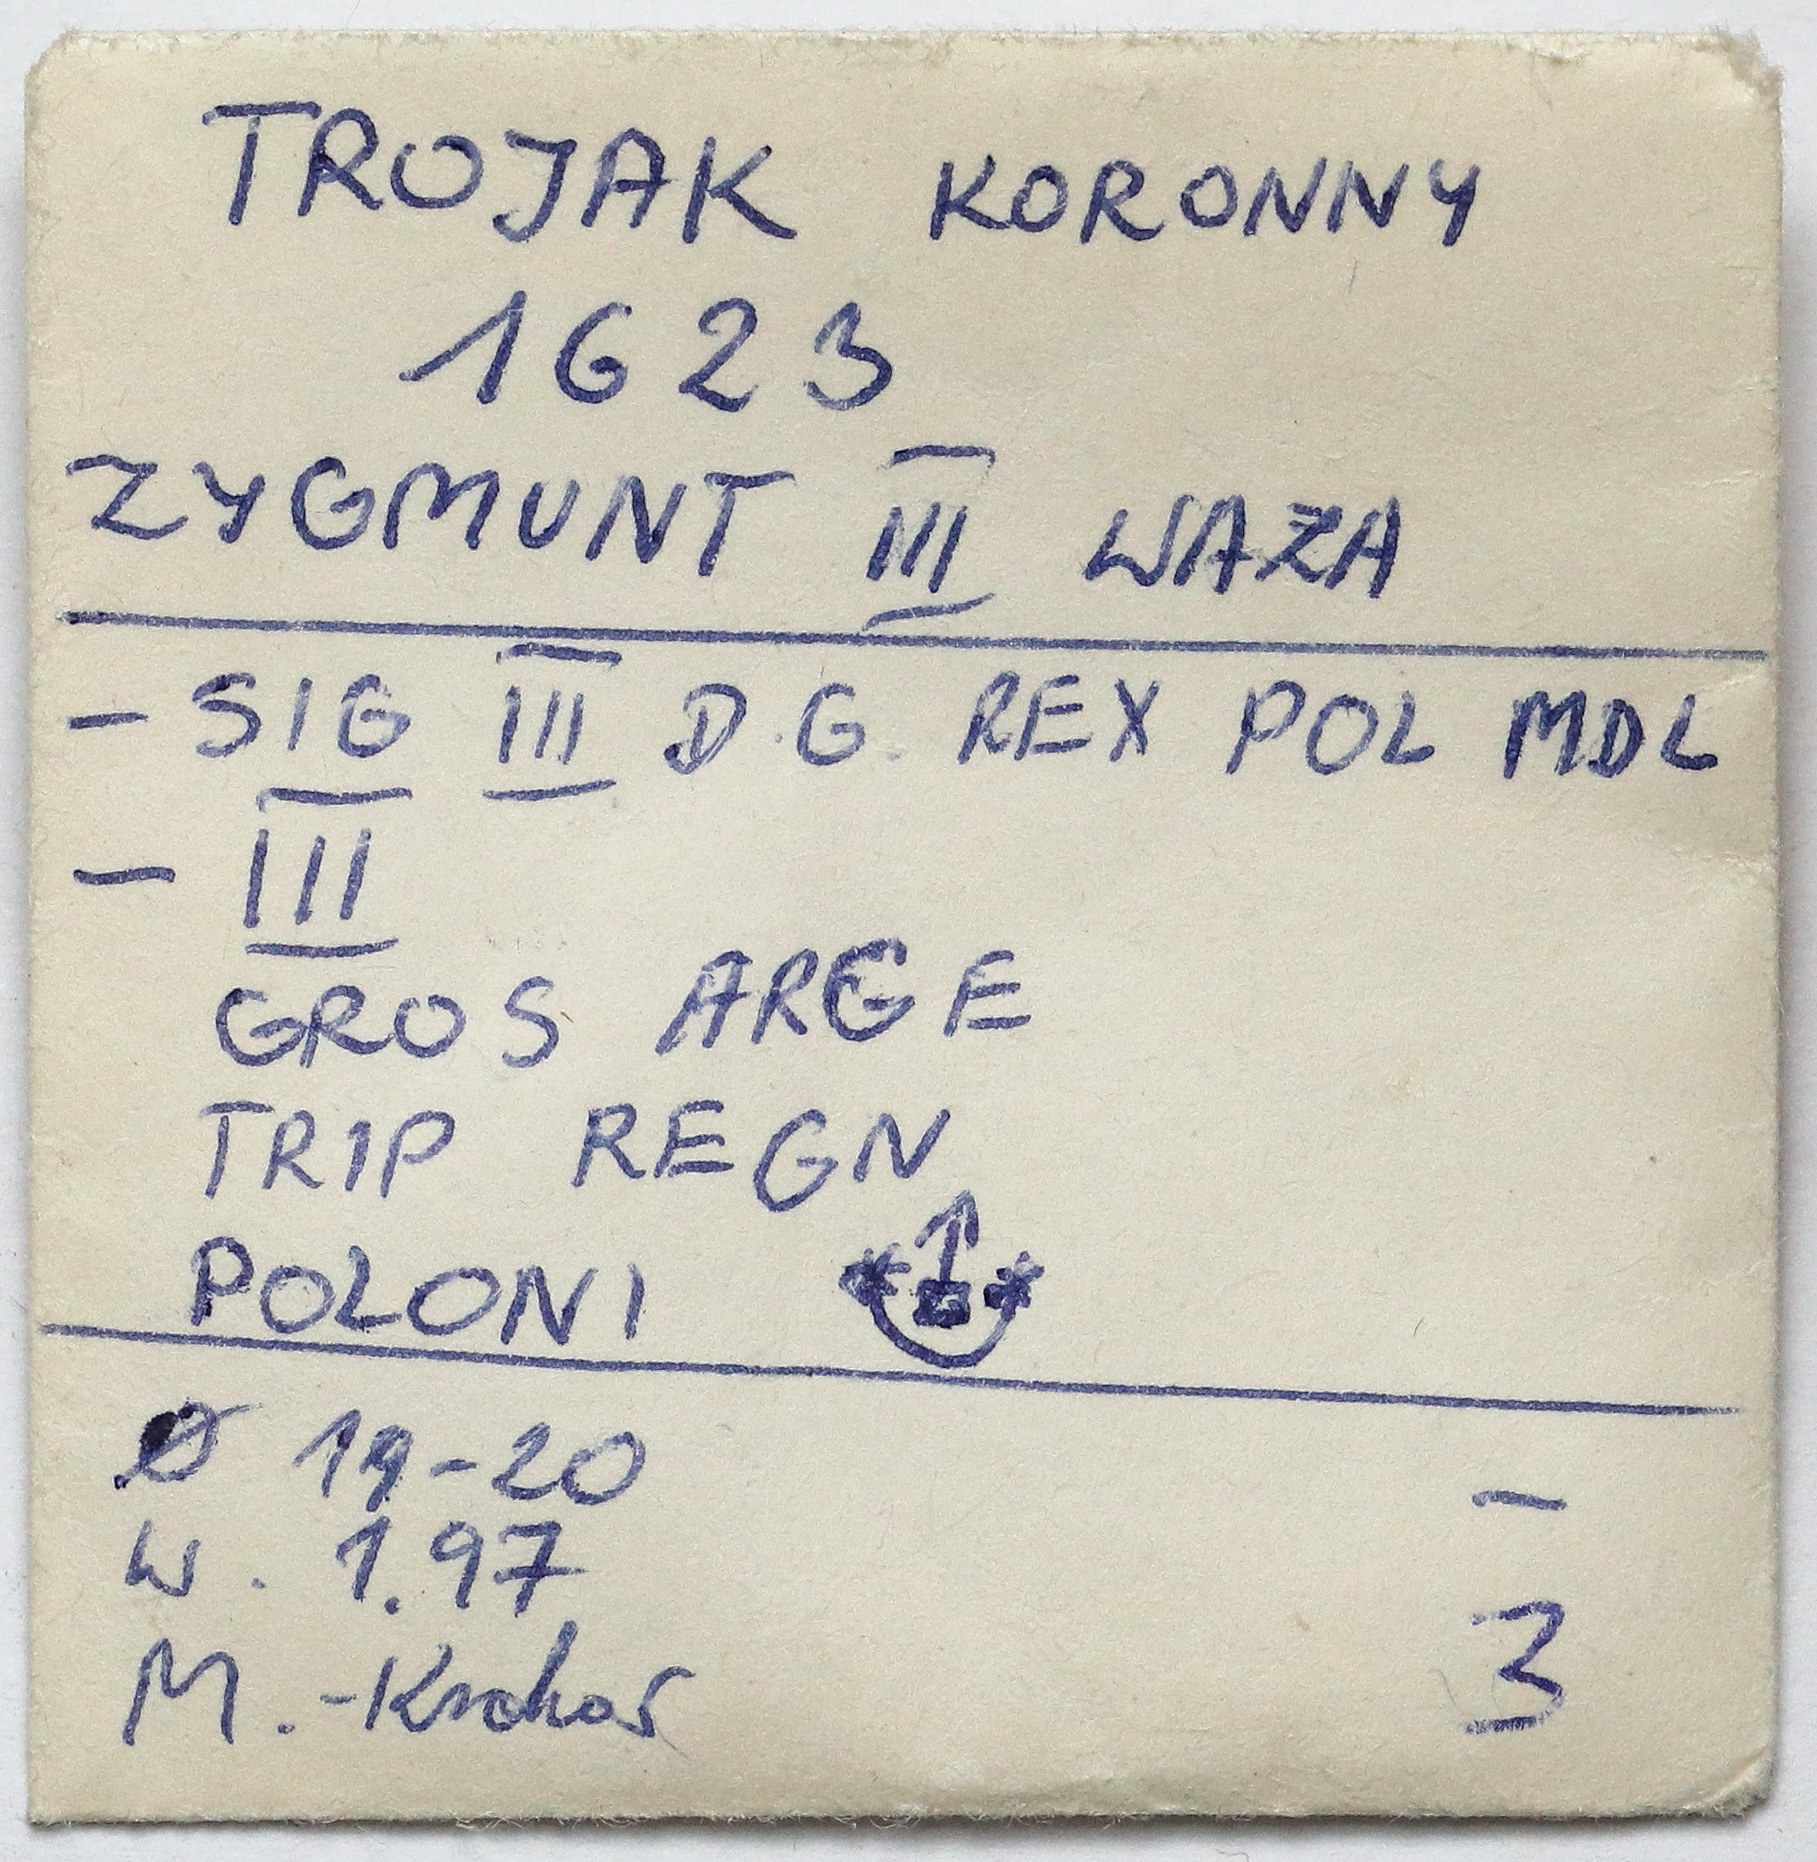 TROJAK KORONNY
1623
ZYGMUNT III WAZA
- SIG III D.G. REX POL MDL
- III
GROS ARGE
TRIP REGN
POLONI
Ø 19-20 -
W. 1.97
M. - Kraków 3